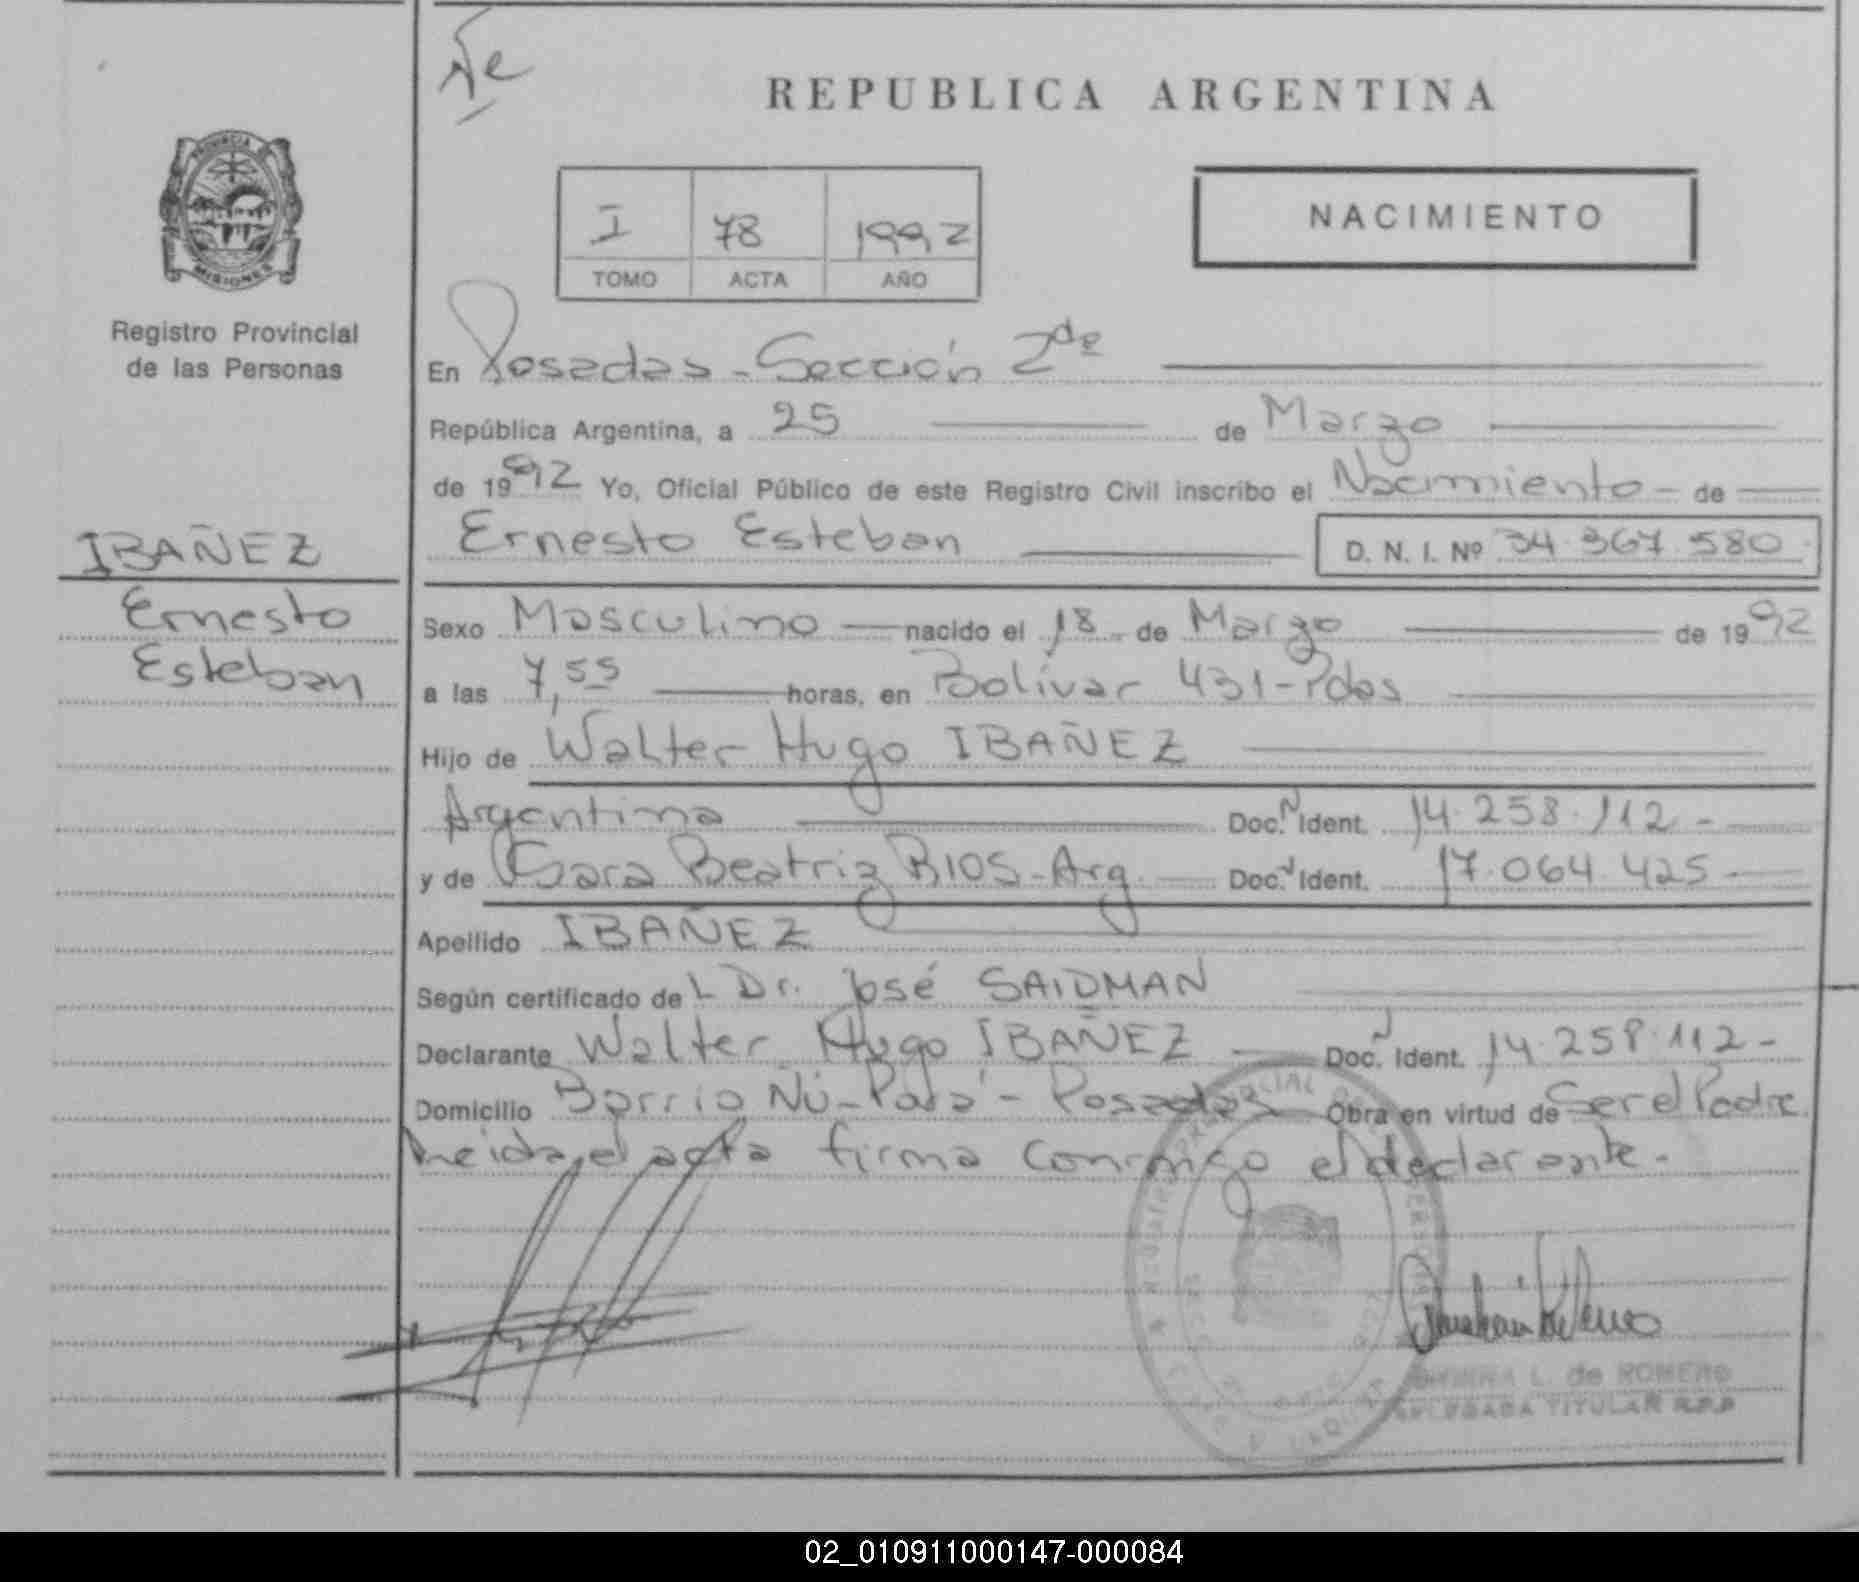 Ñe
REPUBLICA ARGENTINA
PROVINCIA DE
MISIONES
I 78 1992
TOMO ACTA AÑO
NACIMIENTO
Registro Provincial
de las Personas
En Posadas - Sección 2da
República Argentina, a 25 de Marzo
de 1992 Yo, Oficial Público de este Registro Civil inscribo el Nacimiento - de
Ernesto Esteban D. N. I. Nº 34.367.580.
IBAÑEZ
Ernesto
Esteban
Sexo Masculino nacido el 18 - de Marzo de 1992
a las 7,55 horas, en Bolívar 431 - Pdas
Hijo de Walter Hugo IBAÑEZ
Argentina Doc. Ident. 14.258.112 -
y de Sara Beatriz RIOS - Arg. Doc. Ident. 17.064.425 -
Apellido IBAÑEZ
Según certificado del Dr. José SAIDMAN
Declarante Walter Hugo IBAÑEZ Doc. Ident. 14.258.112 -
Domicilio Barrio Ñú - Porá - Posadas Obra en virtud de Ser el Padre
Leída el acta firma conmigo el declarante.
L. de ROMERO
DELEGADA TITULAR R.P.P
02_010911000147-000084